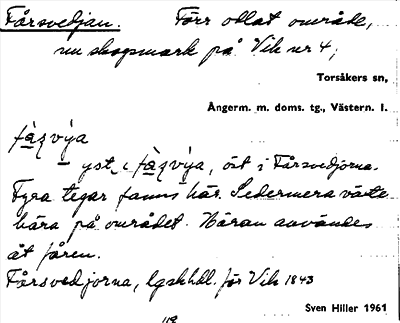 Fårsvedjan. Förr odlat område,
nu skogsmark på Vik nr 4;
Torsåkers sn,
Ångerm. m. doms. tg., Västern. l.
yst, i , öst i Fårsvedjorna.
Fyra tegar fanns här. Sedermera växte
hära på området. Häran användes
åt fåren.
Fårsvedjorna, lgskhdl. för Vik 1843
Sven Hiller 1961